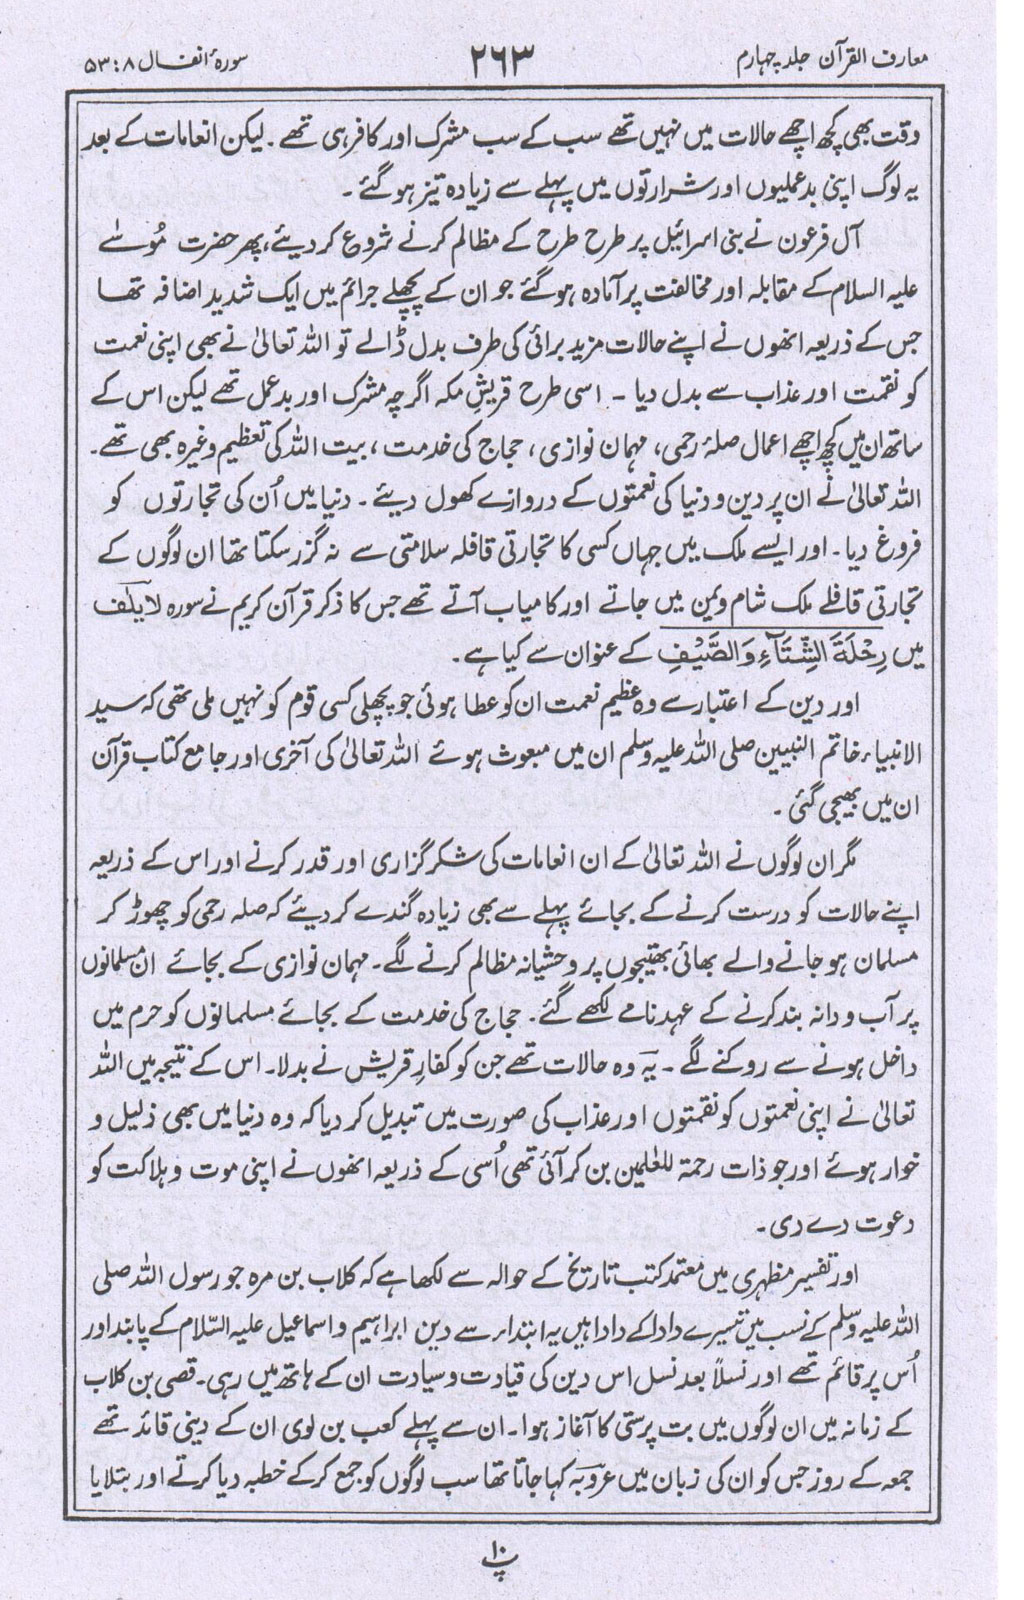 معارف القرآن جلد چہارم
۲۶۳
سورۂ انفال ۸: ۵۳
وقت بھی کچھ اچھے حالات میں نہیں تھے سب کے سب مشرک اور کافر ہی تھے۔ لیکن انعامات کے بعد
یہ لوگ اپنی بدعملیوں اور شرارتوں میں پہلے سے زیادہ تیز ہو گئے۔
آل فرعون نے بنی اسرائیل پر طرح طرح کے مظالم کرنے شروع کر دیئے، پھر حضرت مُوسٰے
علیہ السلام کے مقابلہ اور مخالفت پر آمادہ ہو گئے جو ان کے پچھلے جرائم میں ایک شدید اضافہ تھا
جس کے ذریعہ انھوں نے اپنے حالات مزید برائی کی طرف بدل ڈالے تو اللہ تعالیٰ نے بھی اپنی نعمت
کو نقمت اور عذاب سے بدل دیا۔ اسی طرح قریشِ مکہ اگرچہ مشرک اور بدعمل تھے لیکن اس کے
ساتھ ان میں کچھ اچھے اعمال صلۂ رحمی، مہمان نوازی، حجاج کی خدمت، بیت اللہ کی تعظیم وغیرہ بھی تھے۔
اللہ تعالیٰ نے ان پر دین و دنیا کی نعمتوں کے دروازے کھول دیئے۔ دنیا میں اُن کی تجارتوں کو
فروغ دیا۔ اور ایسے ملک میں جہاں کسی کا تجارتی قافلہ سلامتی سے نہ گزر سکتا تھا ان لوگوں کے
تجارتی قافلے ملک شام و یمن میں جاتے اور کامیاب آتے تھے جس کا ذکر قرآن کریم نے سورہ لایلٰف
میں رِحْلَةَ الشِّتَآءِ وَالصَّيْفِ کے عنوان سے کیا ہے۔
اور دین کے اعتبار سے وہ عظیم نعمت ان کو عطا ہوئی جو پچھلی کسی قوم کو نہیں ملی تھی کہ سید
الانبیاء خاتم النبیین صلی اللہ علیہ وسلم ان میں مبعوث ہوئے اللہ تعالیٰ کی آخری اور جامع کتاب قرآن
ان میں بھیجی گئی۔
مگر ان لوگوں نے اللہ تعالیٰ کے ان انعامات کی شکر گزاری اور قدر کرنے اور اس کے ذریعہ
اپنے حالات کو درست کرنے کے بجائے پہلے سے بھی زیادہ گندے کر دیئے کہ صلہ رحمی کو چھوڑ کر
مسلمان ہو جانے والے بھائی بھتیجوں پر وحشیانہ مظالم کرنے لگے۔ مہمان نوازی کے بجائے ان مسلمانوں
پر آب و دانہ بند کرنے کے عہد نامے لکھے گئے۔ حجاج کی خدمت کے بجائے مسلمانوں کو حرم میں
داخل ہونے سے روکنے لگے۔ یہ وہ حالات تھے جن کو کفارِ قریش نے بدلا۔ اس کے نتیجہ میں اللہ
تعالیٰ نے اپنی نعمتوں کو نقمتوں اور عذاب کی صورت میں تبدیل کر دیا کہ وہ دنیا میں بھی ذلیل و
خوار ہوئے اور جو ذات رحمۃ للعٰلمین بن کر آئی تھی اُسی کے ذریعہ انھوں نے اپنی موت و ہلاکت کو
دعوت دے دی۔
اور تفسیر مظہری میں معتمد کتب تاریخ کے حوالہ سے لکھا ہے کہ کلاب بن مرہ جو رسول اللہ صلی
اللہ علیہ وسلم کے نسب میں تیسرے دادا کے دادا ہیں یہ ابتداء سے دین ابراہیم و اسماعیل علیہ السّلام کے پابند اور
اُس پر قائم تھے اور نسلاً بعد نسل اس دین کی قیادت و سیادت ان کے ہاتھ میں رہی۔ قصی بن کلاب
کے زمانہ میں ان لوگوں میں بت پرستی کا آغاز ہوا۔ ان سے پہلے کعب بن لوی ان کے دینی قائد تھے
جمعہ کے روز جس کو ان کی زبان میں عروبہ کہا جاتا تھا سب لوگوں کو جمع کر کے خطبہ دیا کرتے اور بتلایا
پ۱۰